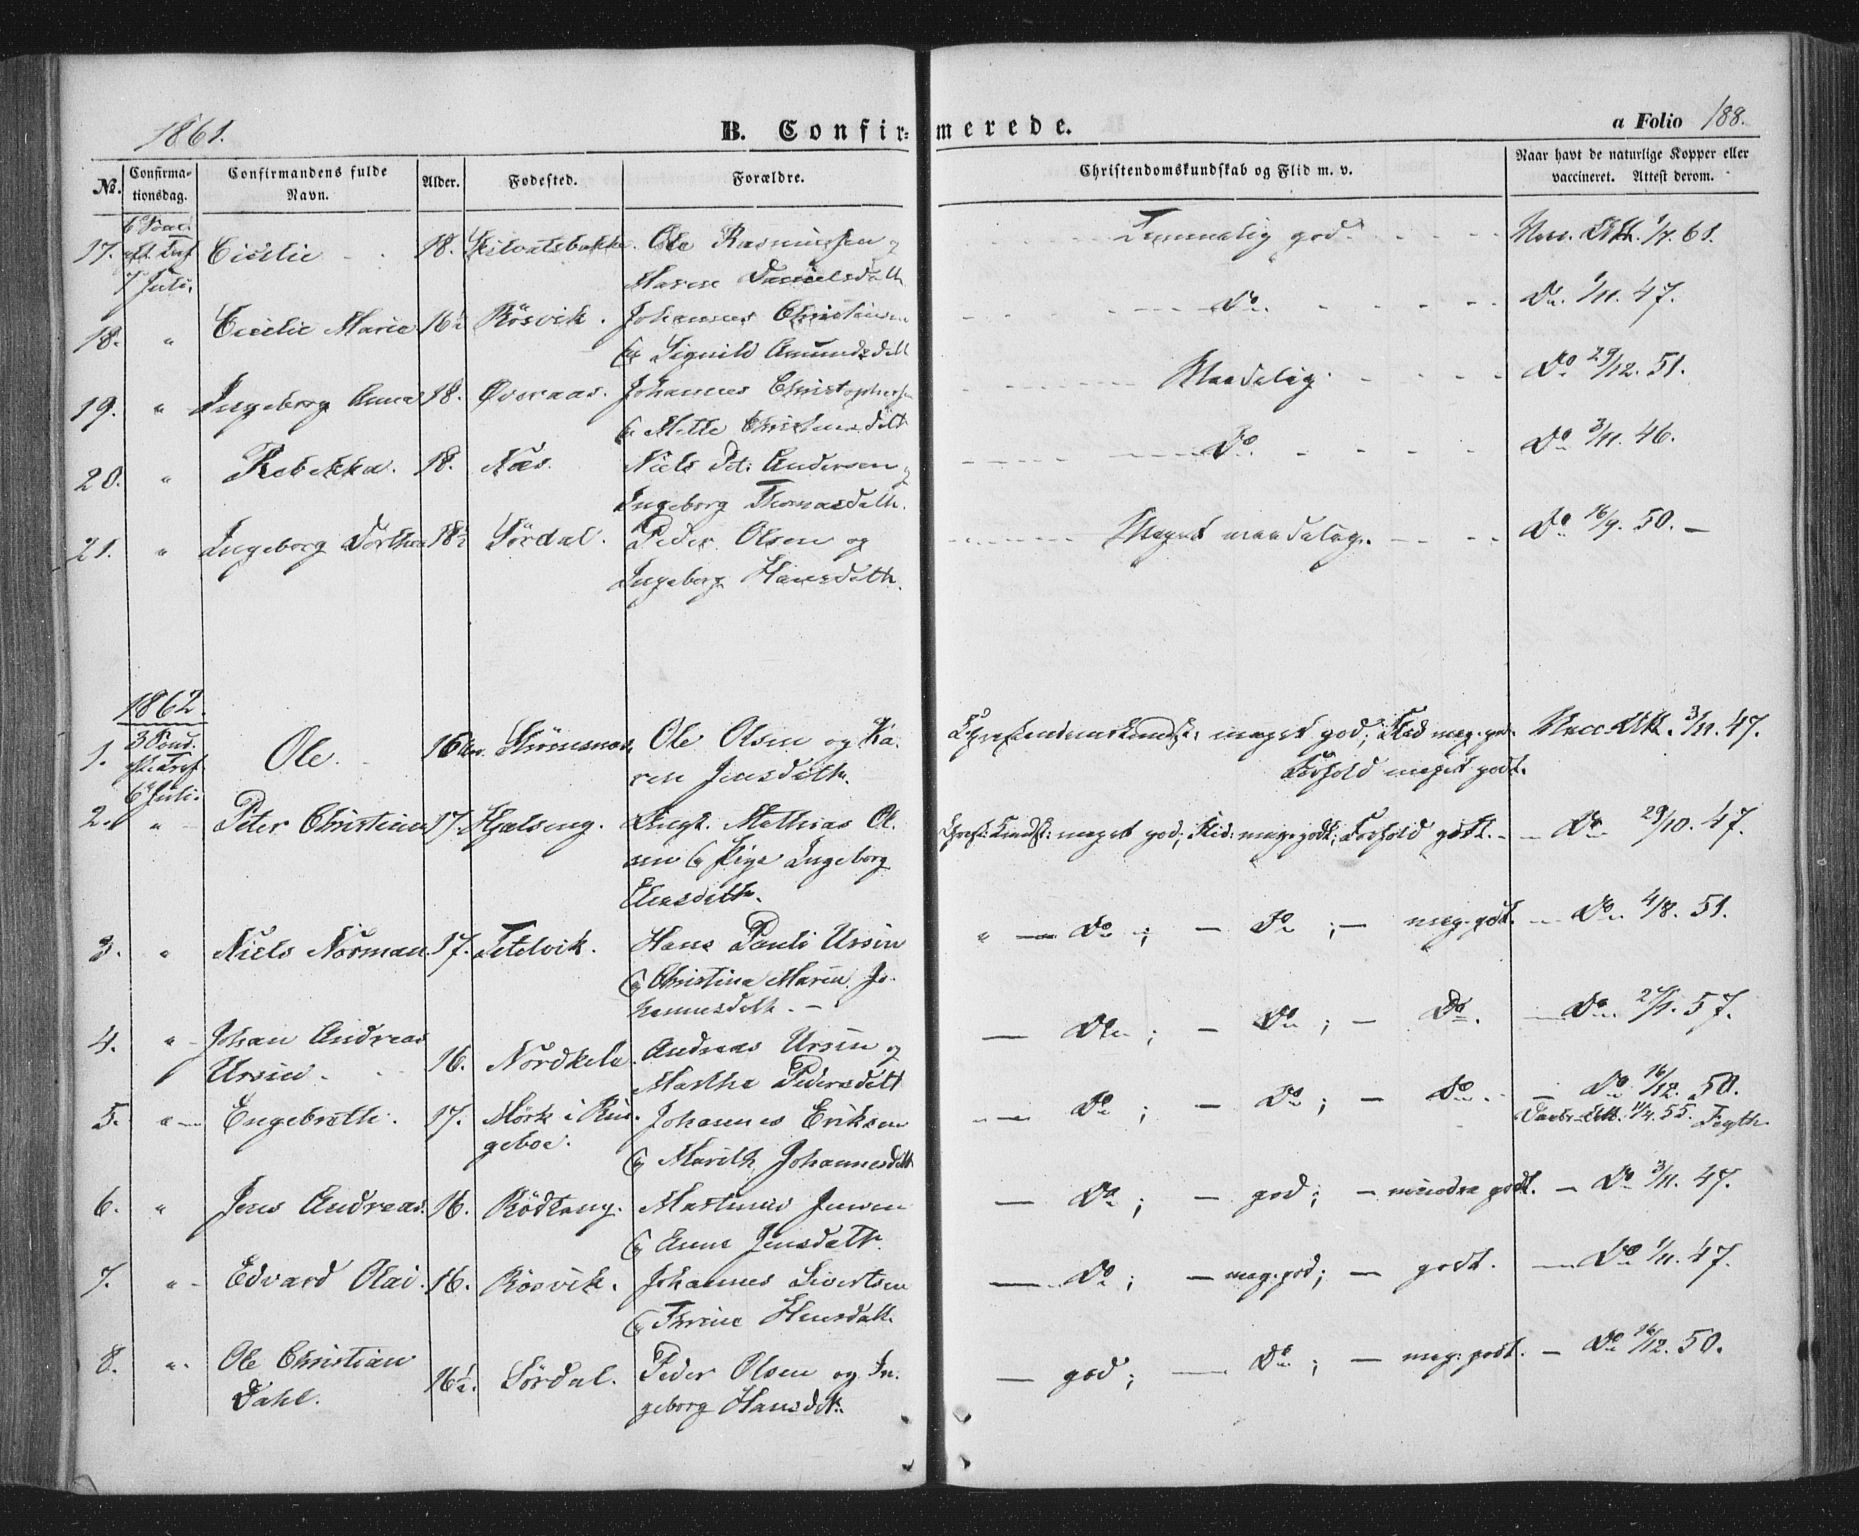 1861. B. Confirmerede. a Folio 188.
No. Confirmationsdag. Confirmandens fulde Navn. Alder. Fødested. Forældre. Christendomskundskab og Flid m. v. Naar havt de naturlige Kopper eller vaccineret. Attest derom.
17. 6 Sønd. eft. Tref. 7 Juli. Cicilie 18. Ole Rasmussen og Temmelig god. Vacc. Att. 1/7. 61.
Maren Danielsdatt
18. " Cicilie Marie 16½ Rösvik. Johannes Christiansen Do. Do. 1/11. 47.
og Signild Amundsdatt
19. " Ingeborg Anna 18. Øveraas. Johannes Christophersen Maadelig. Do 29/12. 51.
og Mette Christensdatt
20. " Rebekka. 18. Næs. Niels Pet: Andersen og Do. Do 3/11. 46.
Ingeborg Thomasdatt.
21. " Ingeborg Dorthea 18½ Sördal. Peder Olsen og Meget maadelig. Do 16/9. 50. —
Ingeborg Hansdatt.
1862.
1. 3 Sønd. eft. Tref. 6 Juli. Ole. 16 Strömsnæs. Ole Olsen og Ka- Christendomskundsk: meget god; Flid meg. god. Vacc Att. 3/11. 47.
ren Jensdatt. Forhold meget godt.
2. " Peter Christian 17. Hjelseng. Ungk. Mathias Ol- Christ: Kundsk: meget god; Flid: meg. god; Forhold godt. — Do 29/10. 47.
sen og Pige Ingeborg
Elensdatt.
3. " Niels Norman 17. Tetelvik. Hans Pauli Ursin " — Do ; — Do ; — meg. godt. — Do 4/8. 51.
og Christina Maria Jo-
hannesdatt. —
4. " Johan Andreas Ursin. 16. Andreas Ursin og — Do ; — Do ; — Do. — Do 57.
Martha Pedersdatt
5. " Engebreth. 17. Mörk i Rin- Johannes Eriksen — Do ; — Do ; — Do. — Do 16/12. 50.
geboe. og Marith Johannesdatt 55.
6. " Jens Andreas. 16. Rödtang. Martinus Jensen — Do ; — god ; — mindre godt. — Do 3/11. 47.
og Anne Jensdatt.
7. " Edvard Olai. 16. Rösvik. Johannes Sivertsen — Do ; — meg. god ; — godt. — Do 1/11. 47.
og Trine Hansdatt.
8. " Ole Christian Dahl. 16½. Sördal. Peder Olsen og In- — god ; — Do ; — meg: godt. — Do 16/12. 50.
geborg Hansdatt.